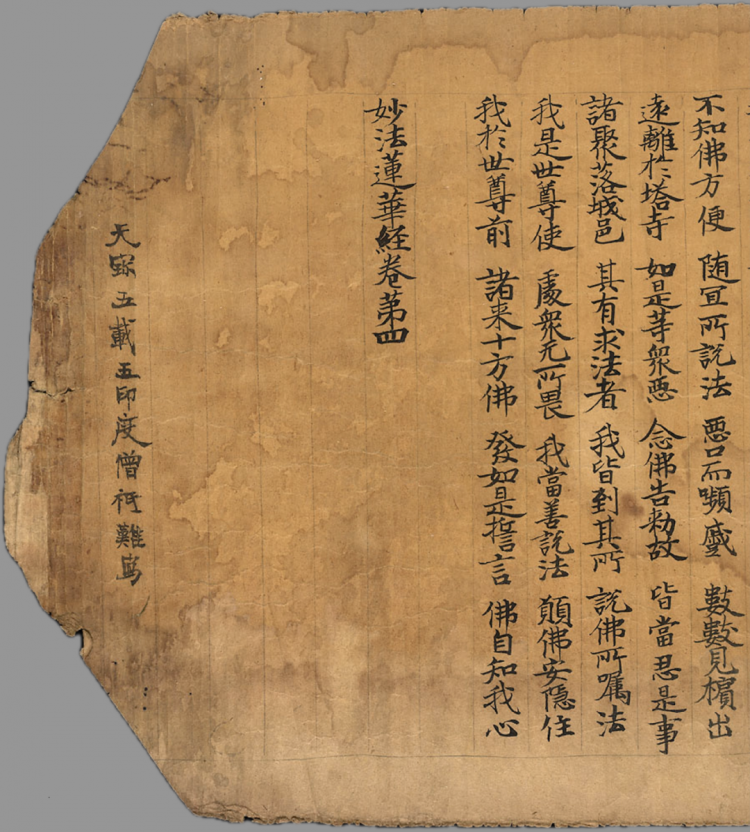 不知佛方便 随冝所說法 惡口而嚬蹙 數數見擯出
遠離於塔寺 如是等衆惡 念佛告勑故 皆當忍是事
諸聚落城邑 其有求法者 我皆到其所 說佛所嘱法
我是世尊使 處衆无所畏 我當善說法 願佛安隱住
我於世尊前 諸来十方佛 發如是誓言 佛自知我心
妙法蓮華經卷第四
天寳五載五印度僧祇難寫